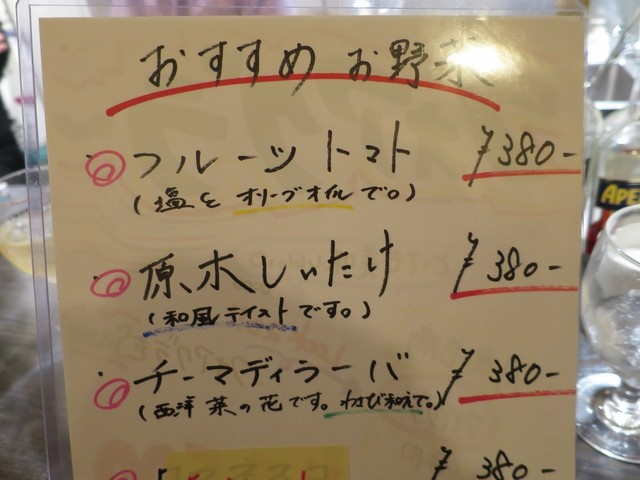 おすすめ お野菜
フルーツトマト ¥380-
(塩とオリーブオイルで。)
原木しいたけ ¥380-
(和風テイストです。)
チーマディラーパ ¥380-
(西洋菜の花です。わさび和えで。)
¥380-
APE